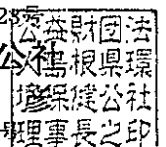 号
公益財団法
人島根県環
公社
境保健公社
理事長之印